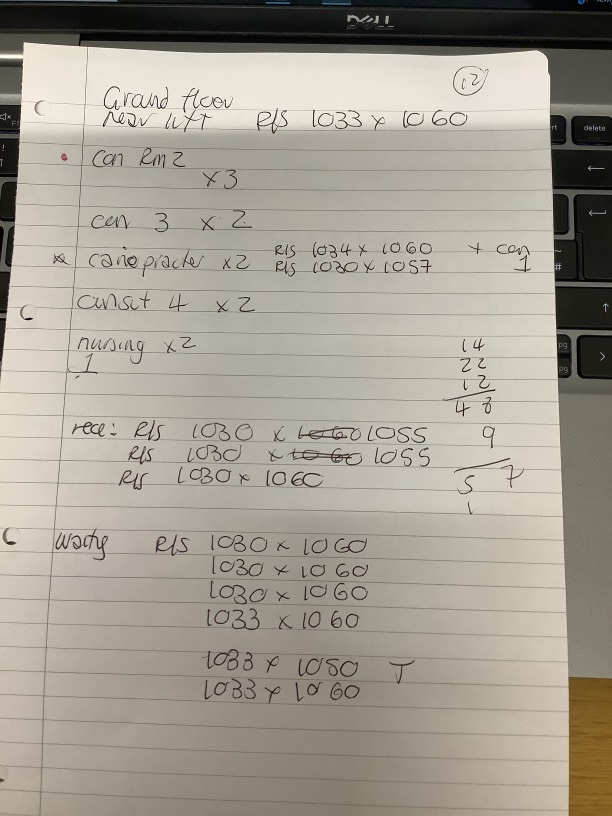 DELL
12
Grand floor
near lift R/S 1033 x 1060
delete
con Rm 2
x3
con 3 x 2
R/S 1034 x 1060 + con
* x2 R/S 1030 x 1057 1
4 x 2
nursing x2
1
14
22
12
48
9
57
1
rece: R/S 1030 x 1060 1055
R/S 1030 x 1060 1055
R/S 1030 x 1060
R/S 1030 x 1060
1030 x 1060
1030 x 1060
1033 x 1060
1033 x 1050 T
1033 x 1060